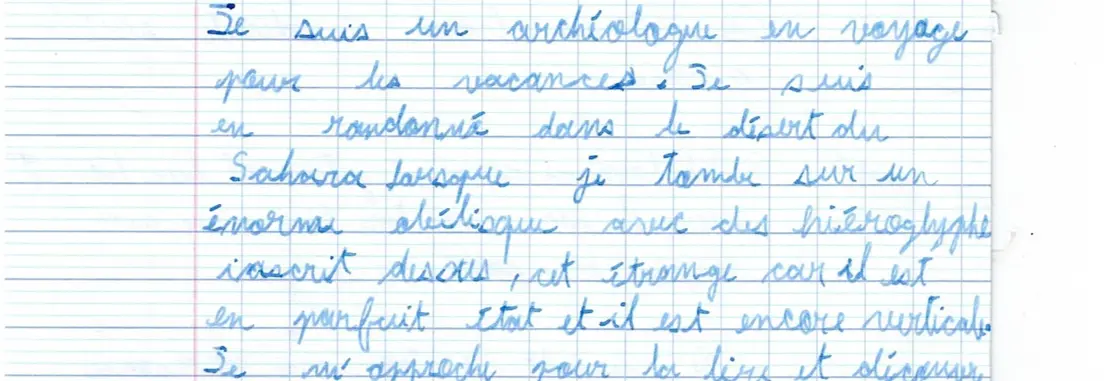 Je suis un archéologue en voyage
pour les vacances. Je suis
en randonné dans le désert du
Sahara lorsque je tombe sur un
énorme obélisque avec des hiéroglyphe
inscrit desous, cet étrange car il est
en parfait état et il est encore verticale.
Je m'approche pour la lire et découvre